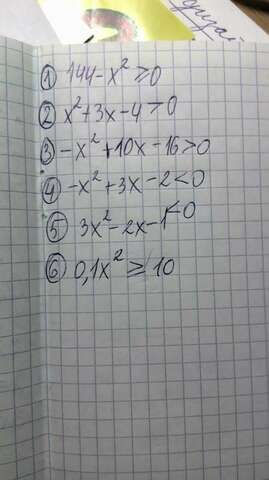 ① 144-x²≥0
② x²+3x-4>0
③ -x²+10x-16>0
④ -x²+3x-2<0
⑤ 3x²-2x-1<0
⑥ 0,1x²≥10